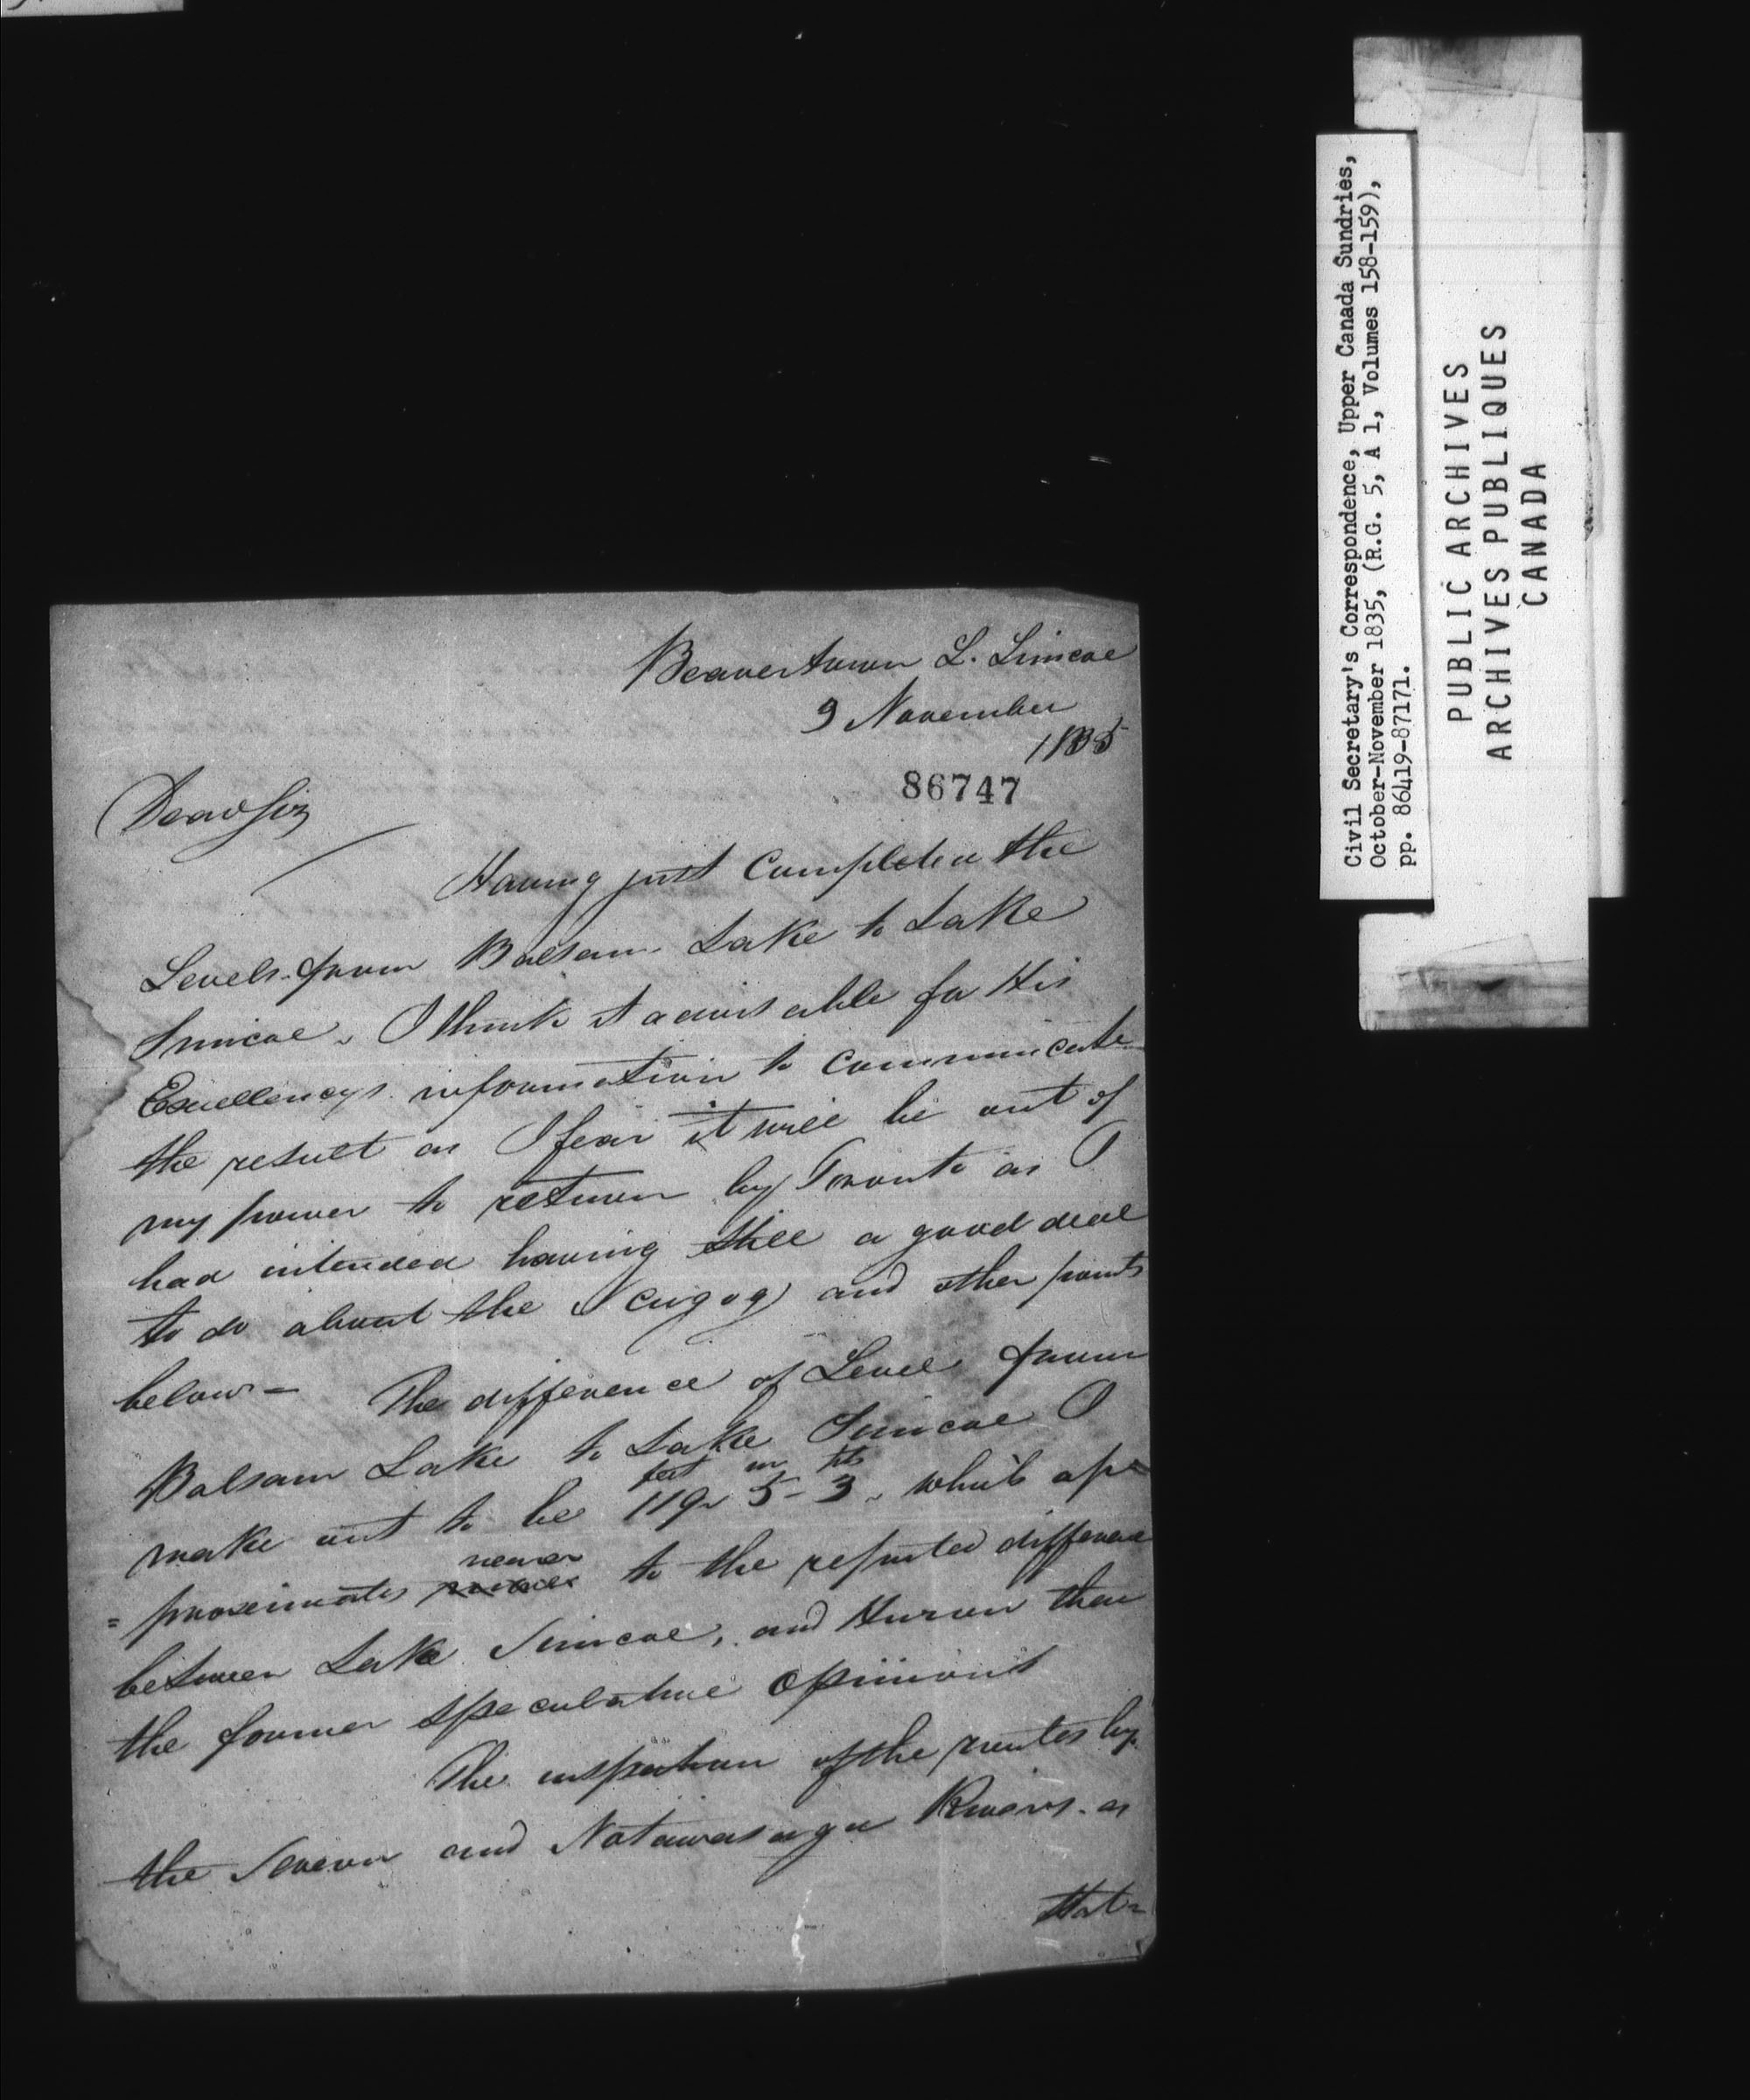 Beavertown L. Simcoe
9 November
1835
86747
Dear Sir
Having just Completed the
Levels from Balsam Lake to Lake
Simcoe, I think it adviseable for His
Excellencys information to communicate
the result as I fear it will be out of
my power to return by Toronto as I
had intended having still a good deal
to do about the Scugog and other points
below - The difference of Level from
Balsam Lake to Lake Simcoe I
feet in
make out to be 119 - 5 - 3, which ap=
nearer
=proximates to the reputed difference
between Lake Simcoe, and Huron than
the former speculative opinions
The inspection of the routes by
the Severn and Notawasaga Rivers as
that=
Civil Secretary's Correspondence, Upper Canada Sundries,
October-November 1835, (R.G. 5, A 1, Volumes 158-159),
pp. 86419-87171.
PUBLIC ARCHIVES
ARCHIVES PUBLIQUES
CANADA